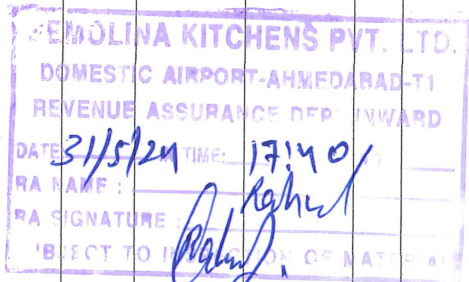 SEMOLINA KITCHENS PVT. LTD.
DOMESTIC AIRPORT-AHMEDABAD-T1
REVENUE ASSURANCE DEP INWARD
DATE 31/5/24 TIME: 17:40
RA NAME : Rahul
RA SIGNATURE : Rahul.
SUBJECT TO INSPECTION OF MATERIAL